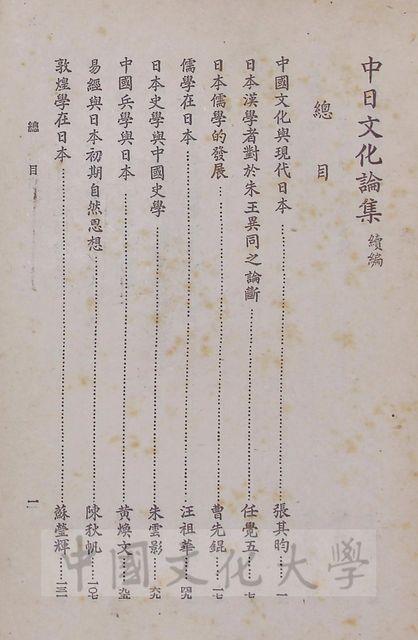 中日文化論集 續編
總目
中國文化與現代日本……張其昀……一
日本漢學者對於朱王異同之論斷……任覺五……七
日本儒學的發展……曹先錕……一七
儒學在日本……汪祖華……四九
日本史學與中國史學……朱雲影……六九
中國兵學與日本……黃煥文……九五
易經與日本初期自然思想……陳秋帆……一〇七
敦煌學在日本……蘇瑩輝……一三一
總目
一
中國文化大學